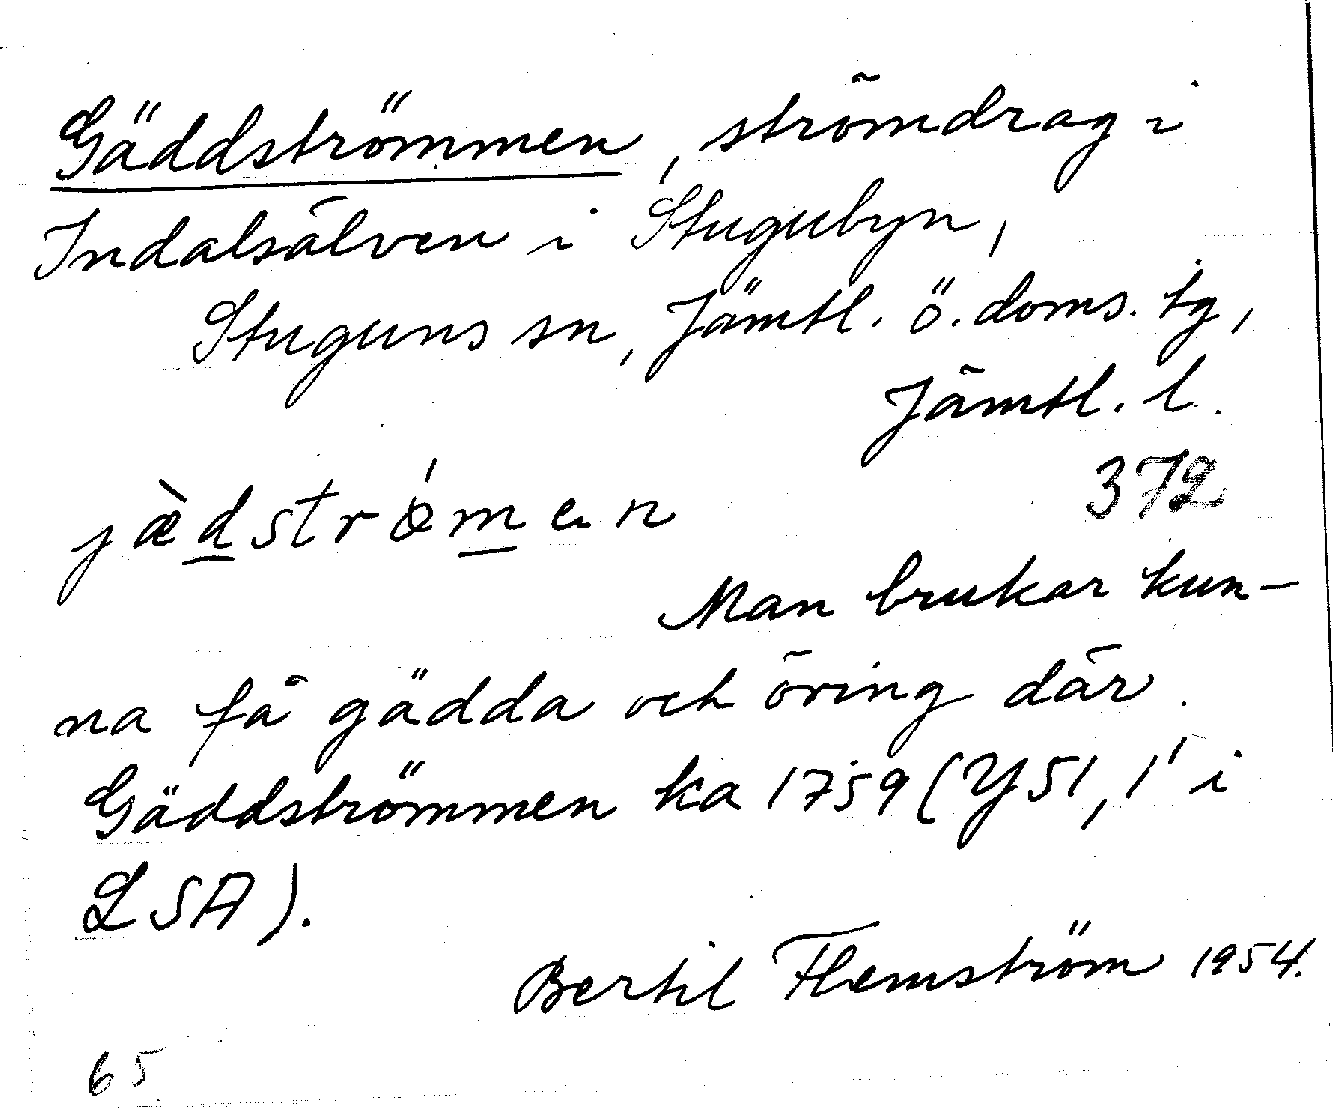 Gäddströmmen, strömdrag i
Indalsälven i Stugubyn,
Stuguns sn, Jämtl. ö. doms. tg,
Jämtl. l.
jæ̀dstrǿmen 372
Man brukar kun-
na få gädda och öring där.
Gäddströmmen ka 1759 (Y51, 1' i
LSA).
Bertil Flemström 1954.
65